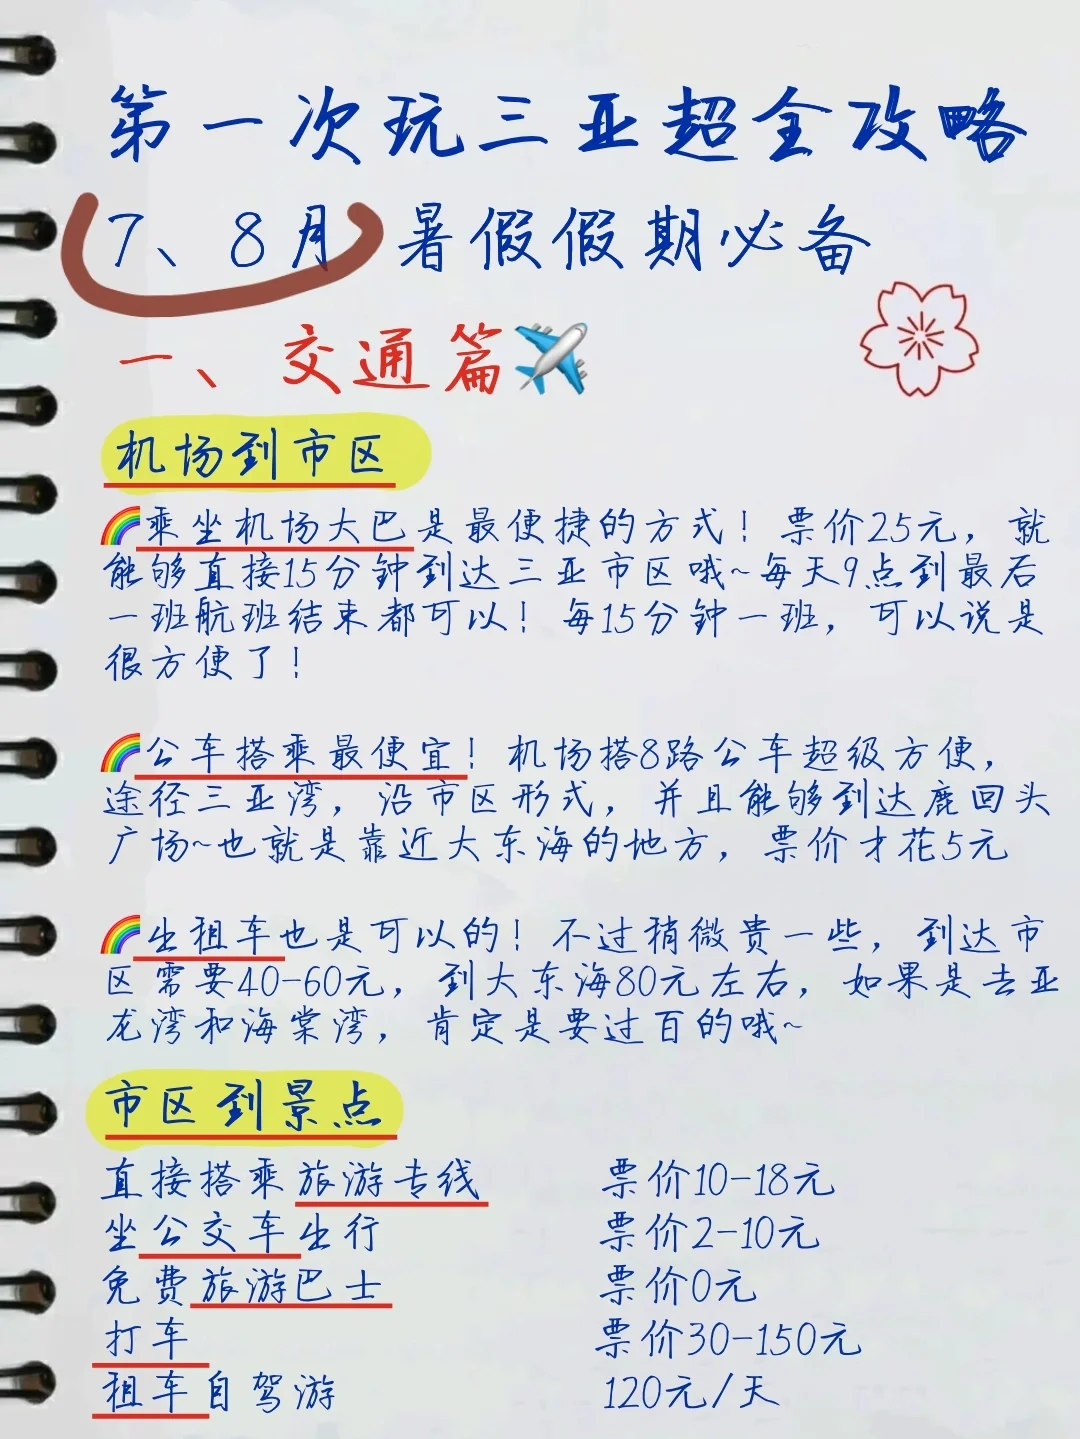 第一次玩三亚超全攻略
7、8月 暑假假期必备
一、交通篇
机场到市区
乘坐机场大巴是最便捷的方式！票价25元，就
能够直接15分钟到达三亚市区哦~每天9点到最后
一班航班结束都可以！每15分钟一班，可以说是
很方便了！
公车搭乘最便宜！机场搭8路公车超级方便，
途径三亚湾，沿市区形式，并且能够到达鹿回头
广场~也就是靠近大东海的地方，票价才花5元
出租车也是可以的！不过稍微贵一些，到达市
区需要40-60元，到大东海80元左右，如果是去亚
龙湾和海棠湾，肯定是要过百的哦~
市区到景点
直接搭乘旅游专线 票价10-18元
坐公交车出行 票价2-10元
免费旅游巴士 票价0元
打车 票价30-150元
租车自驾游 120元/天